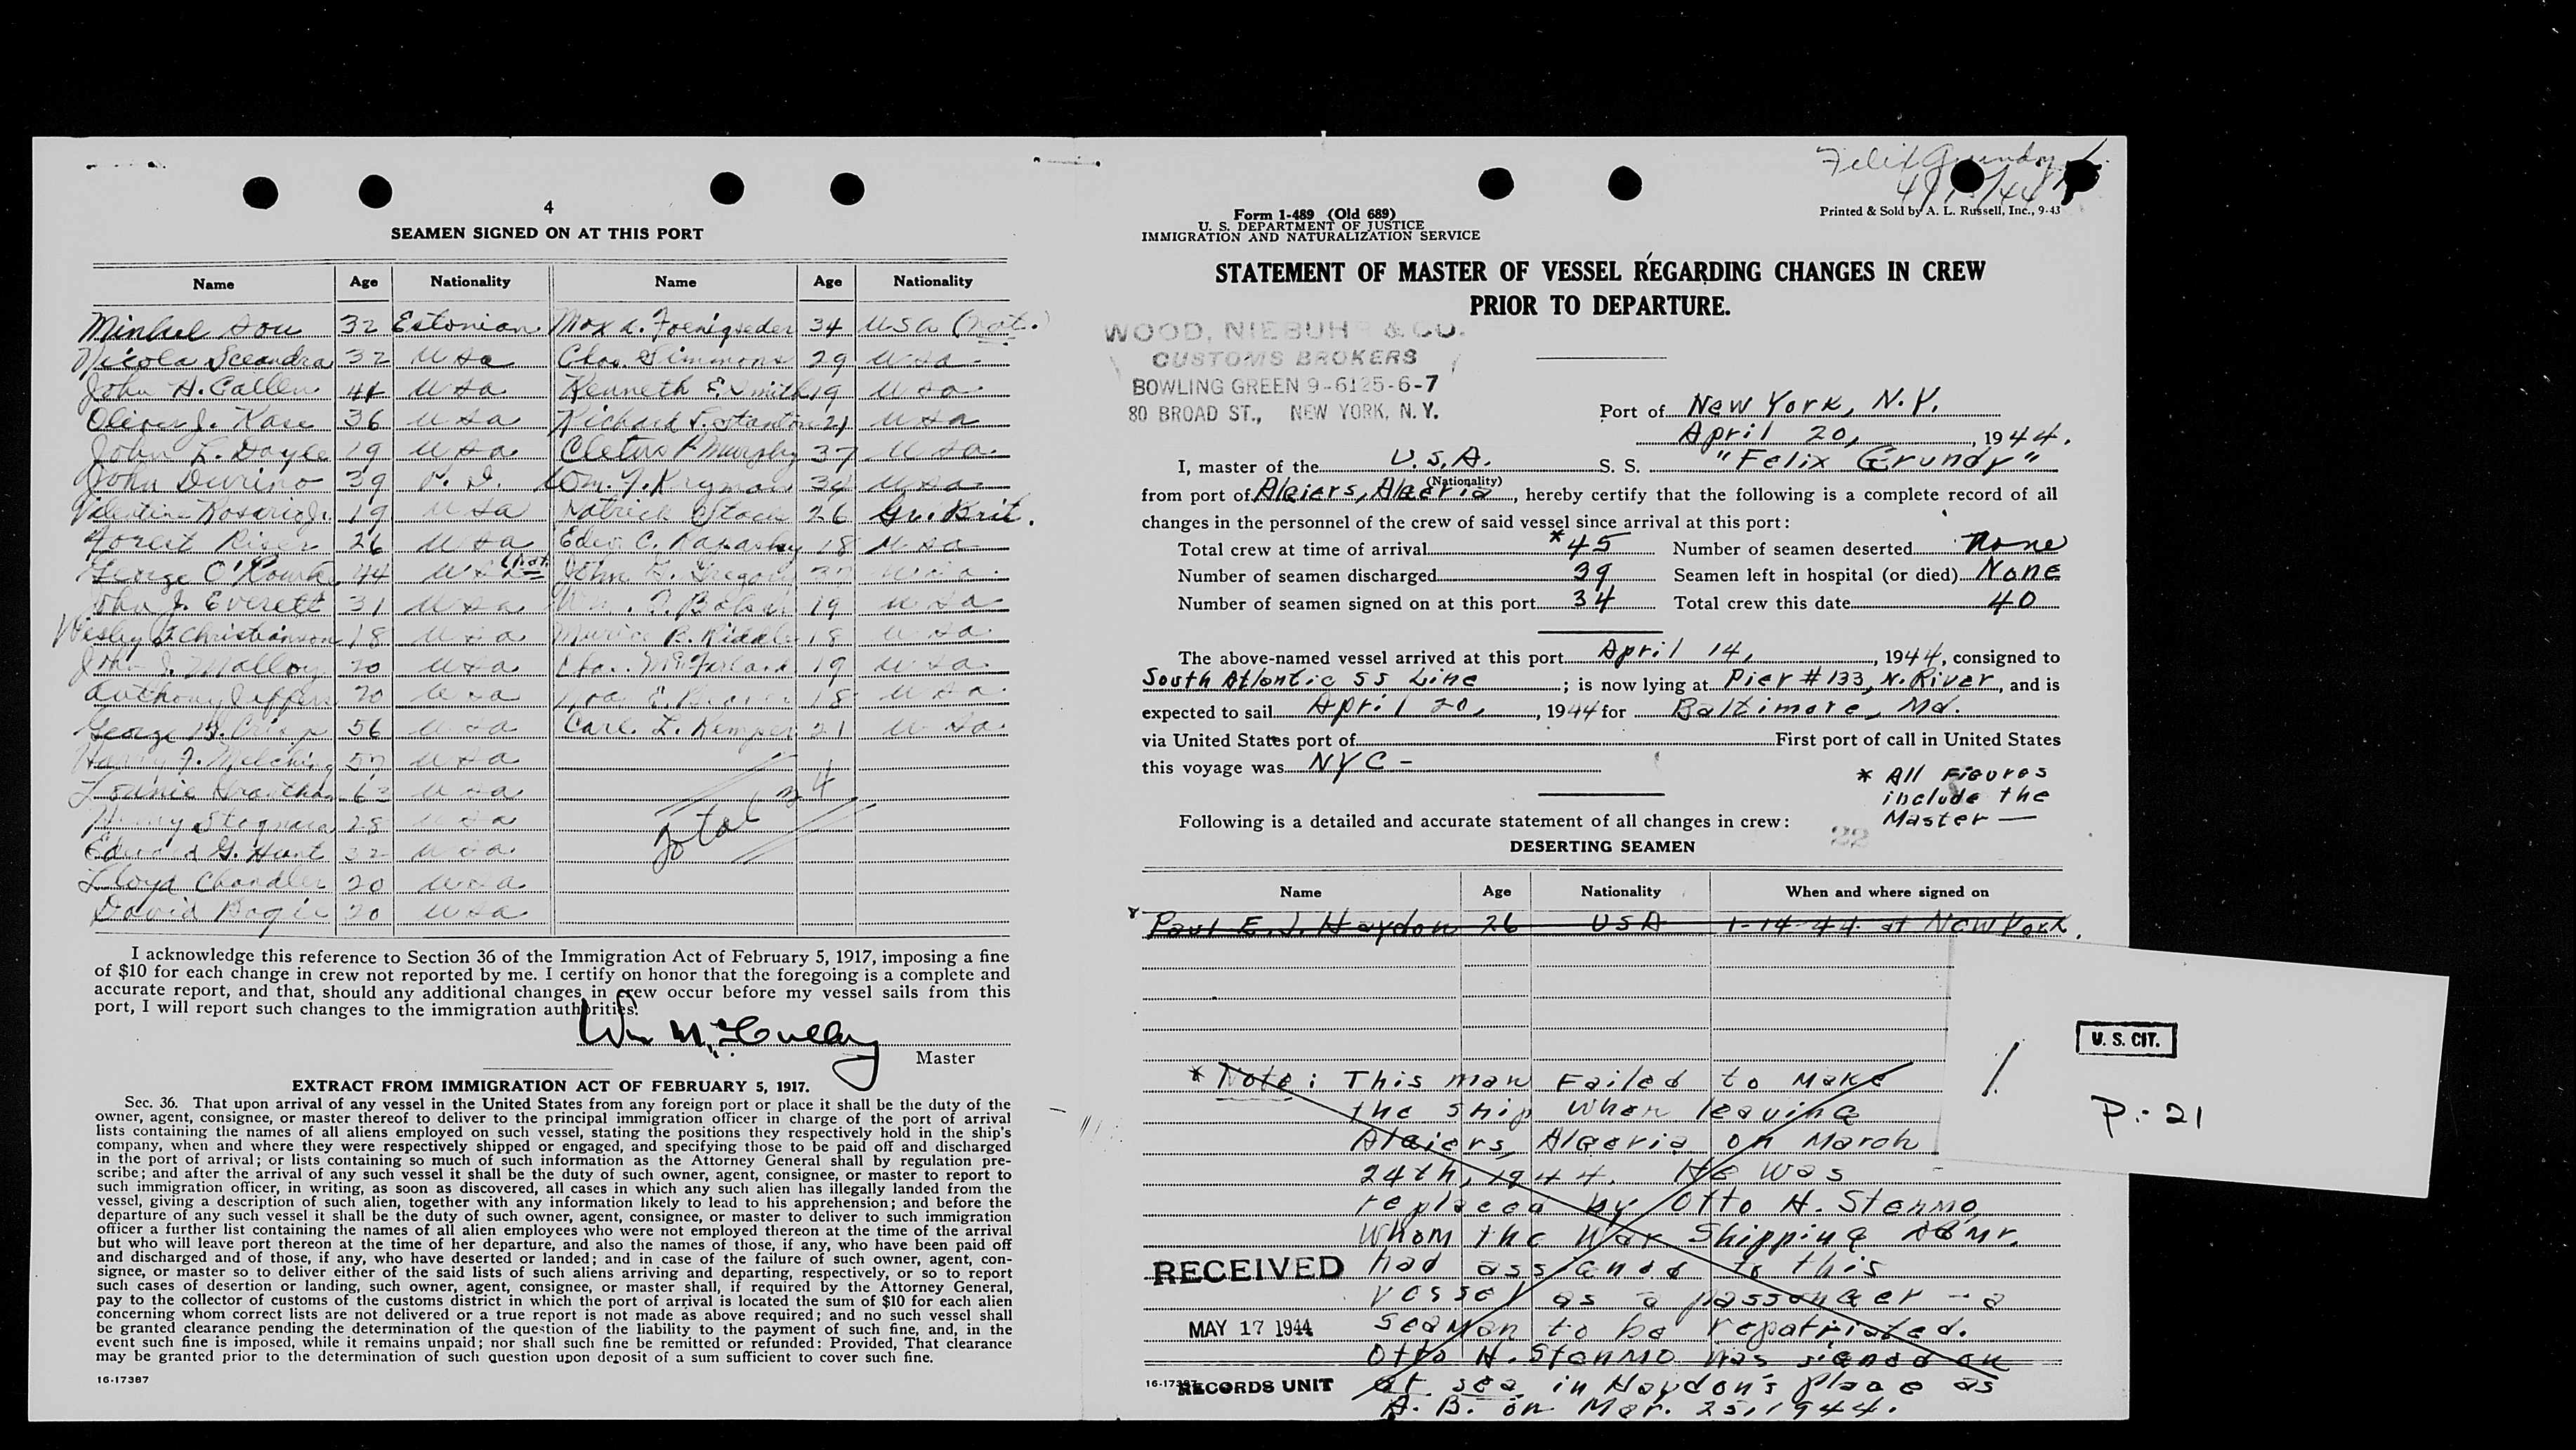 4
SEAMEN SIGNED ON AT THIS PORT
Name Age Nationality Name Age Nationality
32 Estonian Max A. 34 USA (nat.)
Nicola 32 USA Chas. Simmons 29 USA
John H. Callen 41 USA Kenneth E. Smith 19 USA
Oliver J. Kase 36 USA Richard F. Stanton 21 USA
John F. Doyle 19 USA Cletus P. Murphy 37 USA
John Durino 39 P. I. Wm. F. Kryman 34 USA
Valentine 19 USA Patrick Stack 26 Gr. Brit.
Forest Riser 26 USA Edw. C. 18 USA
George O'Rourke 44 USA (nat.) John USA
John J. Everett 31 USA Wm. 19 USA
Wesley Christianson 18 USA R. Riddle 18 USA
John J. Malloy 20 USA Chas. McFarland 19 USA
Anthony Jeffers 20 USA E. 18 USA
George 56 USA Carl L. Kemper 21 USA
Harry F. Melching 57 USA
USA
28 USA
Edward G. Hunt 32 USA
Total 34
Lloyd Chandler 20 USA
David 20 USA
I acknowledge this reference to Section 36 of the Immigration Act of February 5, 1917, imposing a fine
of $10 for each change in crew not reported by me. I certify on honor that the foregoing is a complete and
accurate report, and that, should any additional changes in crew occur before my vessel sails from this
port, I will report such changes to the immigration authorities.
Wm
Master
EXTRACT FROM IMMIGRATION ACT OF FEBRUARY 5, 1917.
Sec. 36. That upon arrival of any vessel in the United States from any foreign port or place it shall be the duty of the
owner, agent, consignee, or master thereof to deliver to the principal immigration officer in charge of the port of arrival
lists containing the names of all aliens employed on such vessel, stating the positions they respectively hold in the ship's
company, when and where they were respectively shipped or engaged, and specifying those to be paid off and discharged
in the port of arrival; or lists containing so much of such information as the Attorney General shall by regulation pre-
scribe; and after the arrival of any such vessel it shall be the duty of such owner, agent, consignee, or master to report to
such immigration officer, in writing, as soon as discovered, all cases in which any such alien has illegally landed from the
vessel, giving a description of such alien, together with any information likely to lead to his apprehension; and before the
departure of any such vessel it shall be the duty of such owner, agent, consignee, or master to deliver to such immigration
officer a further list containing the names of all alien employees who were not employed thereon at the time of the arrival
but who will leave port thereon at the time of her departure, and also the names of those, if any, who have been paid off
and discharged and of those, if any, who have deserted or landed; and in case of the failure of such owner, agent, con-
signee, or master so to deliver either of the said lists of such aliens arriving and departing, respectively, or so to report
such cases of desertion or landing, such owner, agent, consignee, or master shall, if required by the Attorney General,
pay to the collector of customs of the customs district in which the port of arrival is located the sum of $10 for each alien
concerning whom correct lists are not delivered or a true report is not made as above required; and no such vessel shall
be granted clearance pending the determination of the question of the liability to the payment of such fine, and, in the
event such fine is imposed, while it remains unpaid; nor shall such fine be remitted or refunded: Provided, That clearance
may be granted prior to the determination of such question upon deposit of a sum sufficient to cover such fine.
16-17387
Felix Grundy
Form 1-489 (Old 689)
U. S. DEPARTMENT OF JUSTICE
IMMIGRATION AND NATURALIZATION SERVICE
Printed & Sold by A. L. Russell, Inc., 9-43
STATEMENT OF MASTER OF VESSEL REGARDING CHANGES IN CREW
PRIOR TO DEPARTURE.
WOOD, NIEBUHR & CO.
CUSTOMS BROKERS
BOWLING GREEN 9-6125-6-7
80 BROAD ST., NEW YORK, N. Y.
Port of New York, N.Y.
April 20, 1944.
I, master of the U.S.A. S. S. "Felix Grundy"
(Nationality)
from port of Algiers, Algeria, hereby certify that the following is a complete record of all
changes in the personnel of the crew of said vessel since arrival at this port:
Total crew at time of arrival *45 Number of seamen deserted None
Number of seamen discharged 39 Seamen left in hospital (or died) None
Number of seamen signed on at this port 34 Total crew this date 40
The above-named vessel arrived at this port April 14, 1944, consigned to
South Atlantic SS Line; is now lying at Pier #133, N. River, and is
expected to sail April 20, 1944 for Baltimore, Md.
via United States port of First port of call in United States
this voyage was NYC -
* All Figures
include the
Master —
Following is a detailed and accurate statement of all changes in crew:
22
DESERTING SEAMEN
Name Age Nationality When and where signed on
Paul E. J. Haydon 26 USA 1-14-44 at New York.
* Note: This man Failed to Make
the ship when leaving
Algiers, Algeria on March
24th, 1944. He was
replaced by Otto H. Stenmo
whom the War Shipping Admr.
had assigned to this
vessel as a passenger - a
seaman to be repatriated.
Otto H. Stenmo was signed on
at sea in Haydon's place as
A. B. on Mar. 25, 1944.
RECEIVED
MAY 17 1944
RECORDS UNIT
U. S. CIT.
1
P.-21